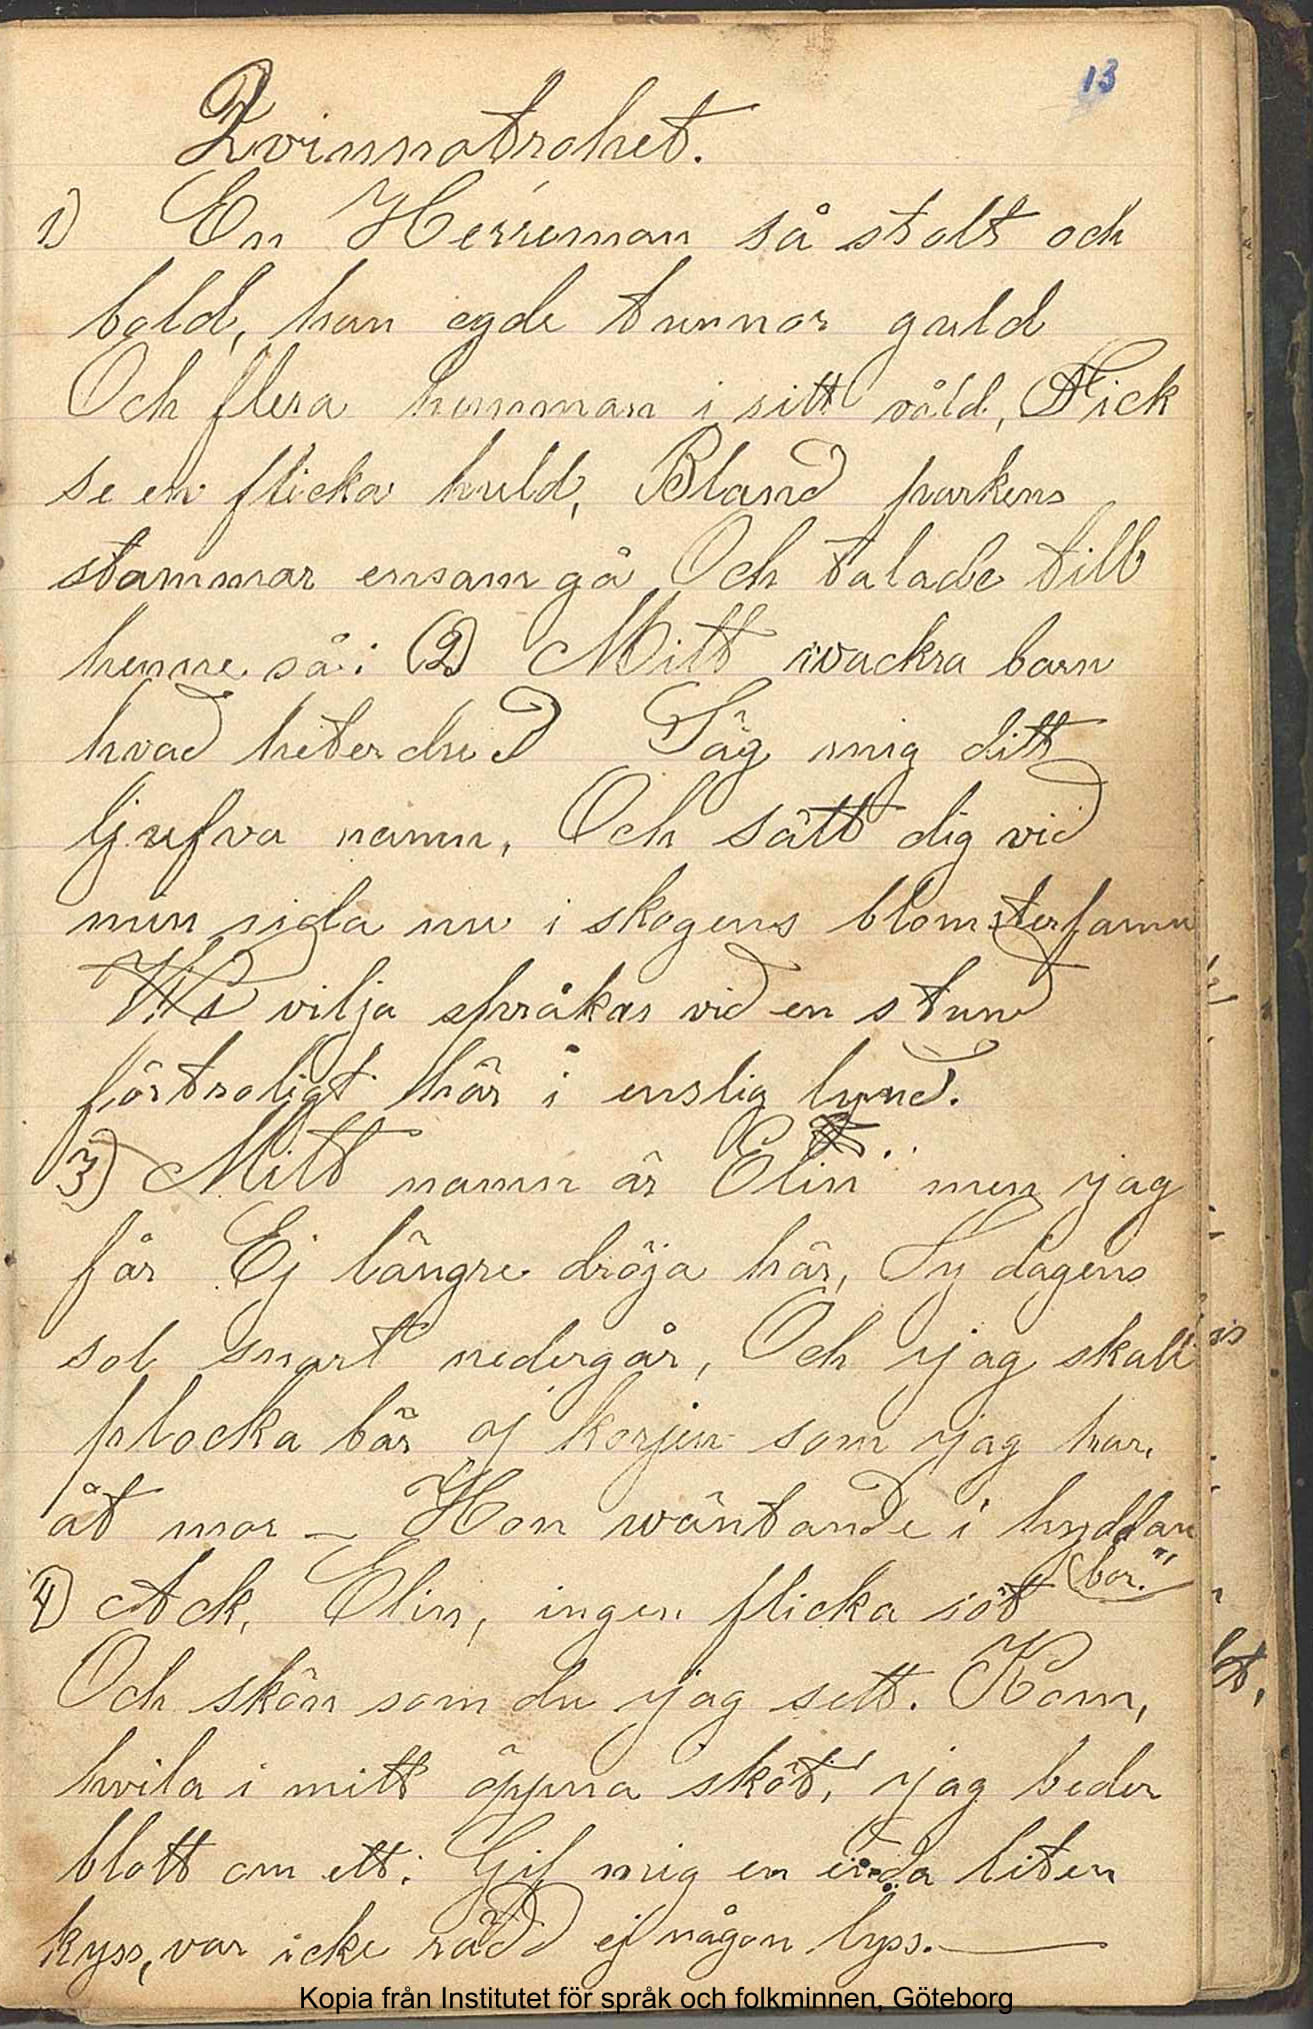 13
Qvinnotrohet.
1) En Herreman så stolt och
bold, han egde tunnor guld
Och flera hemman i sitt våld, Fick
se en flicka huld, Bland parkens
stammar ensam gå Och talade till
henne så: (2) Mitt wackra barn
hvad heter du? Säg mig ditt
ljufva namn, Och sätt dig vid
min sida nu i skogens blomsterfamn
Wi vilja språkas vid en stund
förtroligt här i enslig lund.
3) Mitt namn är Elin men jag
får Ej längre dröja här, Ty dagens
sol snart nedergår, Och jag skall
plocka bär i korjen som jag har
åt mor — Hon wäntande i hyddan
bor."
4) Ack, Elin, ingen flicka söt
Och skön som du jag sett. Kom,
hvila i mitt öppna sköt, jag beder
blott om ett: Gif mig en enda liten
kyss, var icke rädd ej någon lyss.—
Kopia från Institutet för språk och folkminnen, Göteborg